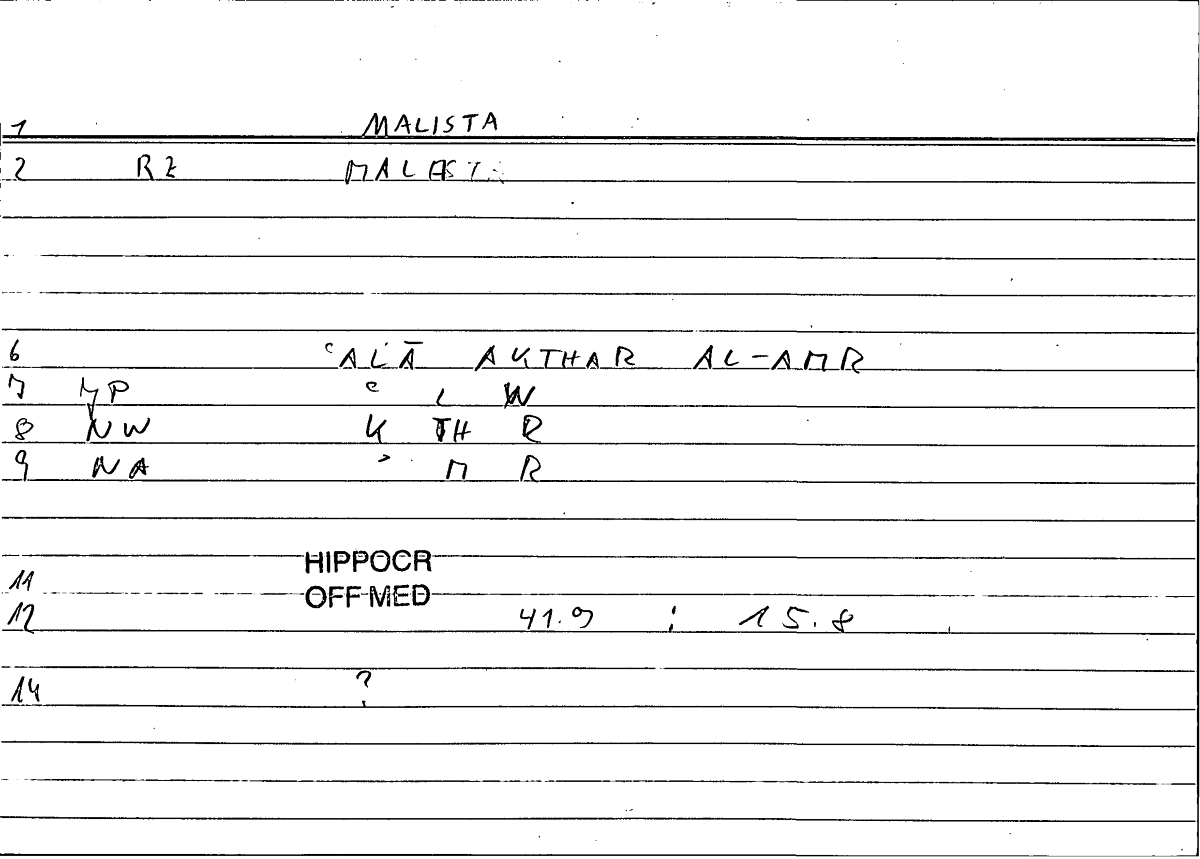 1 MALISTA
2 RZ MALAST
6 ʿALĀ AKTHAR AL-AMR
7 MP ʿ L W
8 NW K TH R
9 NA ʾ M R
HIPPOCR
11
OFF MED
12 41.9 : 15.8
14 ?